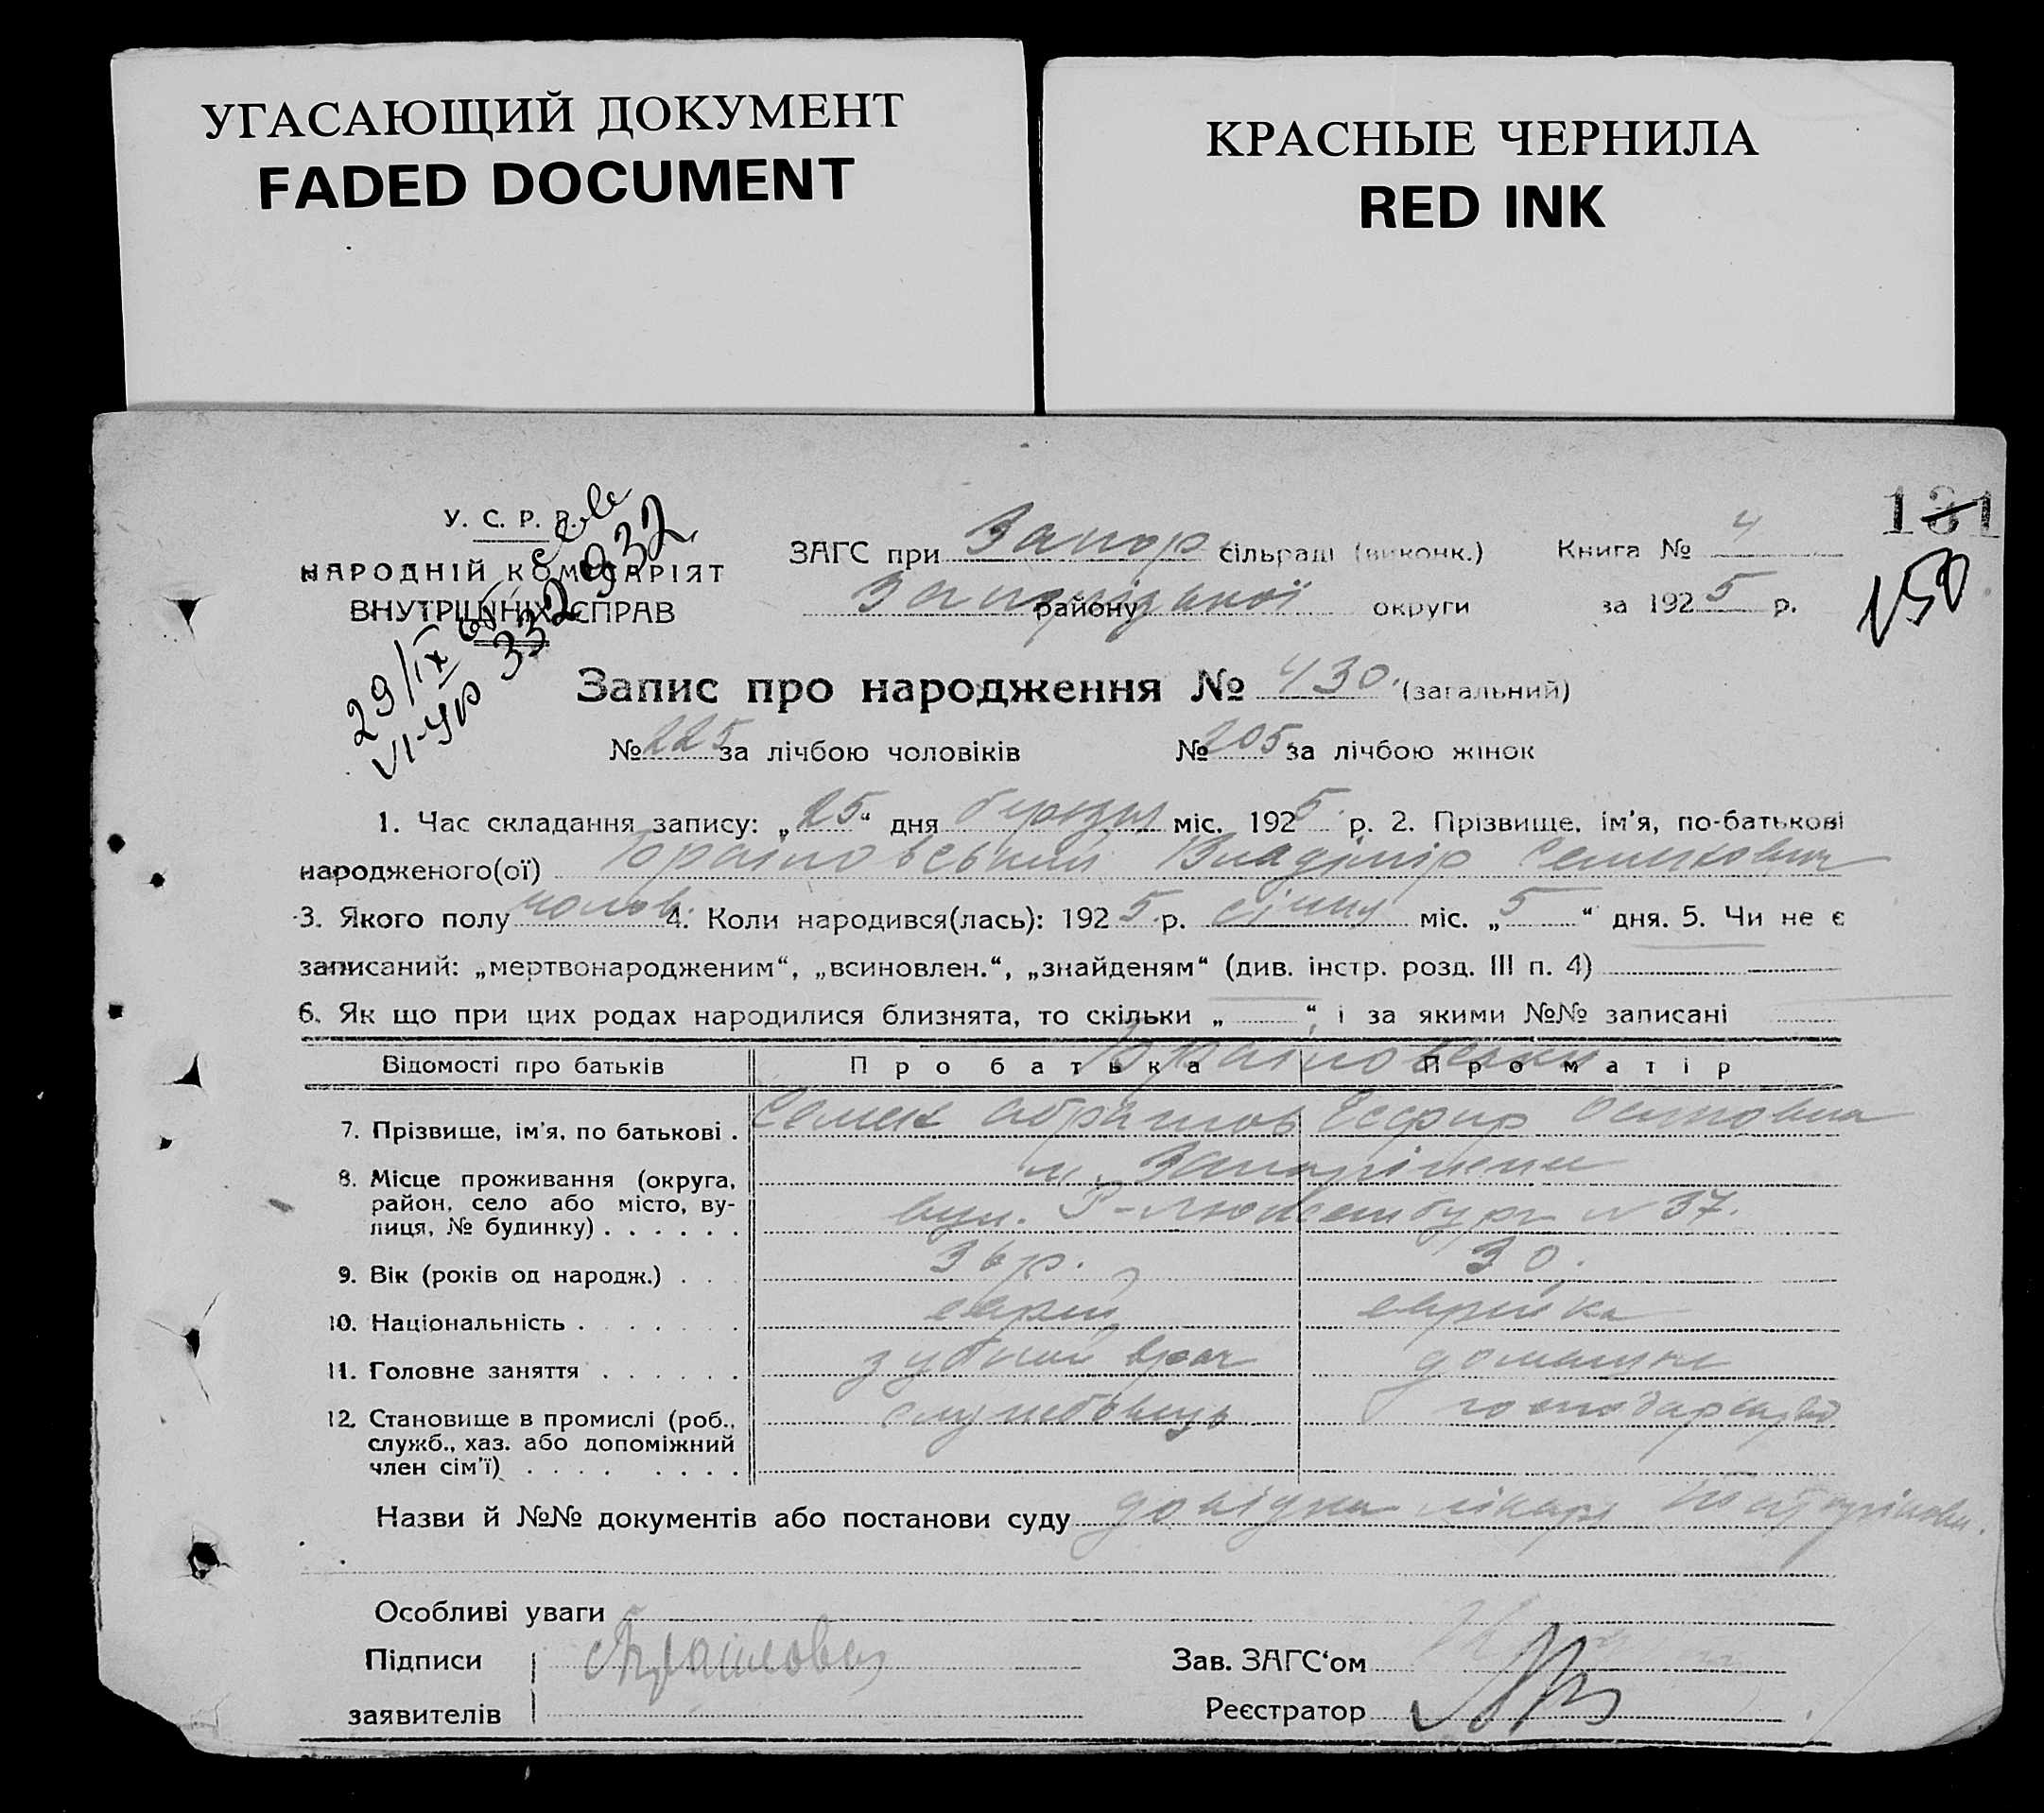 УГАСАЮЩИЙ ДОКУМЕНТ
FADED DOCUMENT
КРАСНЫЕ ЧЕРНИЛА
RED INK
У. С. Р. Р.
НАРОДНІЙ КОМІСАРІЯТ
ВНУТРІШНІХ СПРАВ
29/IX 65
VI-ЯР 332932
ЗАГС при Запор сільраді (виконк.) Книга № 4
131
150
Запорізької району округи за 1925 р.
Запис про народження № 430. (загальний)
№ 225 за лічбою чоловіків № 205 за лічбою жінок
1. Час складання запису: „25“ дня березня міс. 1925 р. 2. Прізвище, ім'я, по-батькові
народженого(ої) Владімір Семенович
3. Якого полу чолов. 4. Коли народився(лась): 1925 р. січня міс. „5“ дня. 5. Чи не є
записаний: „мертвонародженим“, „всиновлен.“, „знайденям“ (див. інстр. розд. III п. 4)
6. Як що при цих родах народилися близнята, то скільки „ “, і за якими №№ записані
Відомості про батьків Про батька Про матір
7. Прізвище, ім'я, по батькові . Семен Абрамов Есфир Осиповна
8. Місце проживання (округа, м. Запоріжжя
район, село або місто, ву-
лиця, № будинку) . . . . . . вул. Р-Люксембург № 37.
9. Вік (років од народж.) . . . 36 р. 30.
10. Національність . . . . . . єврей єврейка
11. Головне заняття . . . . . . зубний врач домашнє
12. Становище в промислі (роб., службовець господарство
служб., хаз. або допоміжний
член сім'ї) . . . . . . . .
Назви й №№ документів або постанови суду довідка лікаря
Особливі уваги
Підписи Зав. ЗАГС'ом
заявителів Реєстратор